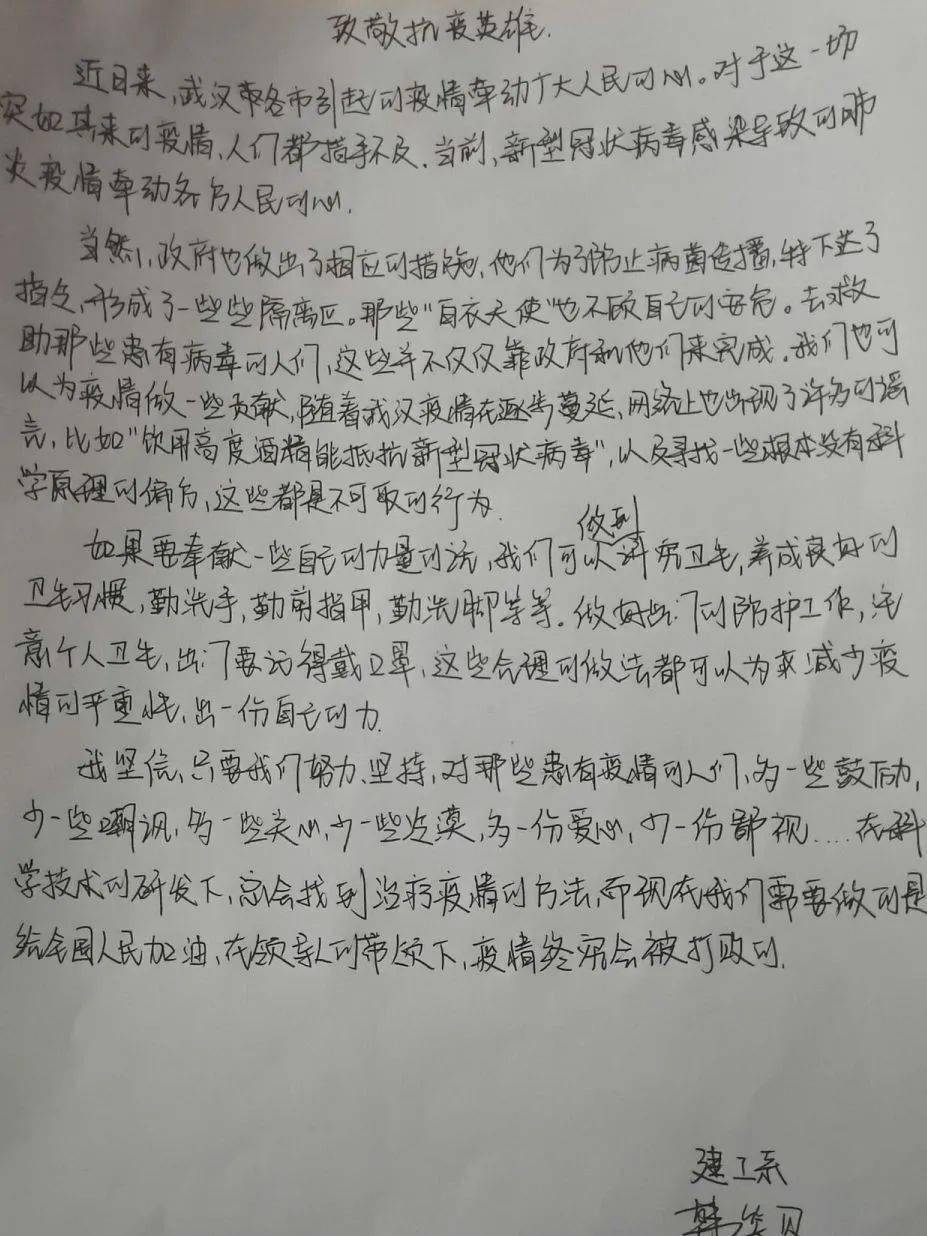 致敬抗疫英雄.
近日来,武汉等各市引起的疫情牵动广大人民的心。对于这一切
突如其来的疫情,人们都措手不及.当前,新型冠状病毒感染导致的肺
炎疫情牵动各方人民的心.
当然,政府也做出了相应的措施,他们为了防止病菌传播,特下达了
指令,形成了一些些隔离区。那些"白衣天使"也不顾自己的安危。去救
助那些患有病毒的人们,这些并不仅仅靠政府和他们来完成.我们也可
以为疫情做一些贡献,随着武汉疫情在逐步蔓延,网络上也出现了许多的谣
言,比如"饮用高度酒精能抵抗新型冠状病毒",以及寻找一些根本没有科
学原理的偏方,这些都是不可取的行为.
如果要奉献一些自己的力量的话,我们可以做到讲究卫生,养成良好的
卫生习惯,勤洗手,勤剪指甲,勤洗脚等等.做好出门的防护工作,注
意个人卫生,出门要记得戴口罩,这些合理的做法都可以为来减少疫
情的严重性,出一份自己的力.
我坚信,只要我们努力、坚持,对那些患有疫情的人们,多一些鼓励,
少一些嘲讽,多一些关心,少一些冷漠,多一份爱心,少一份鄙视....在科
学技术的研发下,总会找到治疗疫情的方法,而现在我们需要做的是
给全国人民加油,在领导人的带领下,疫情终究会被打败的.
建工系
韩